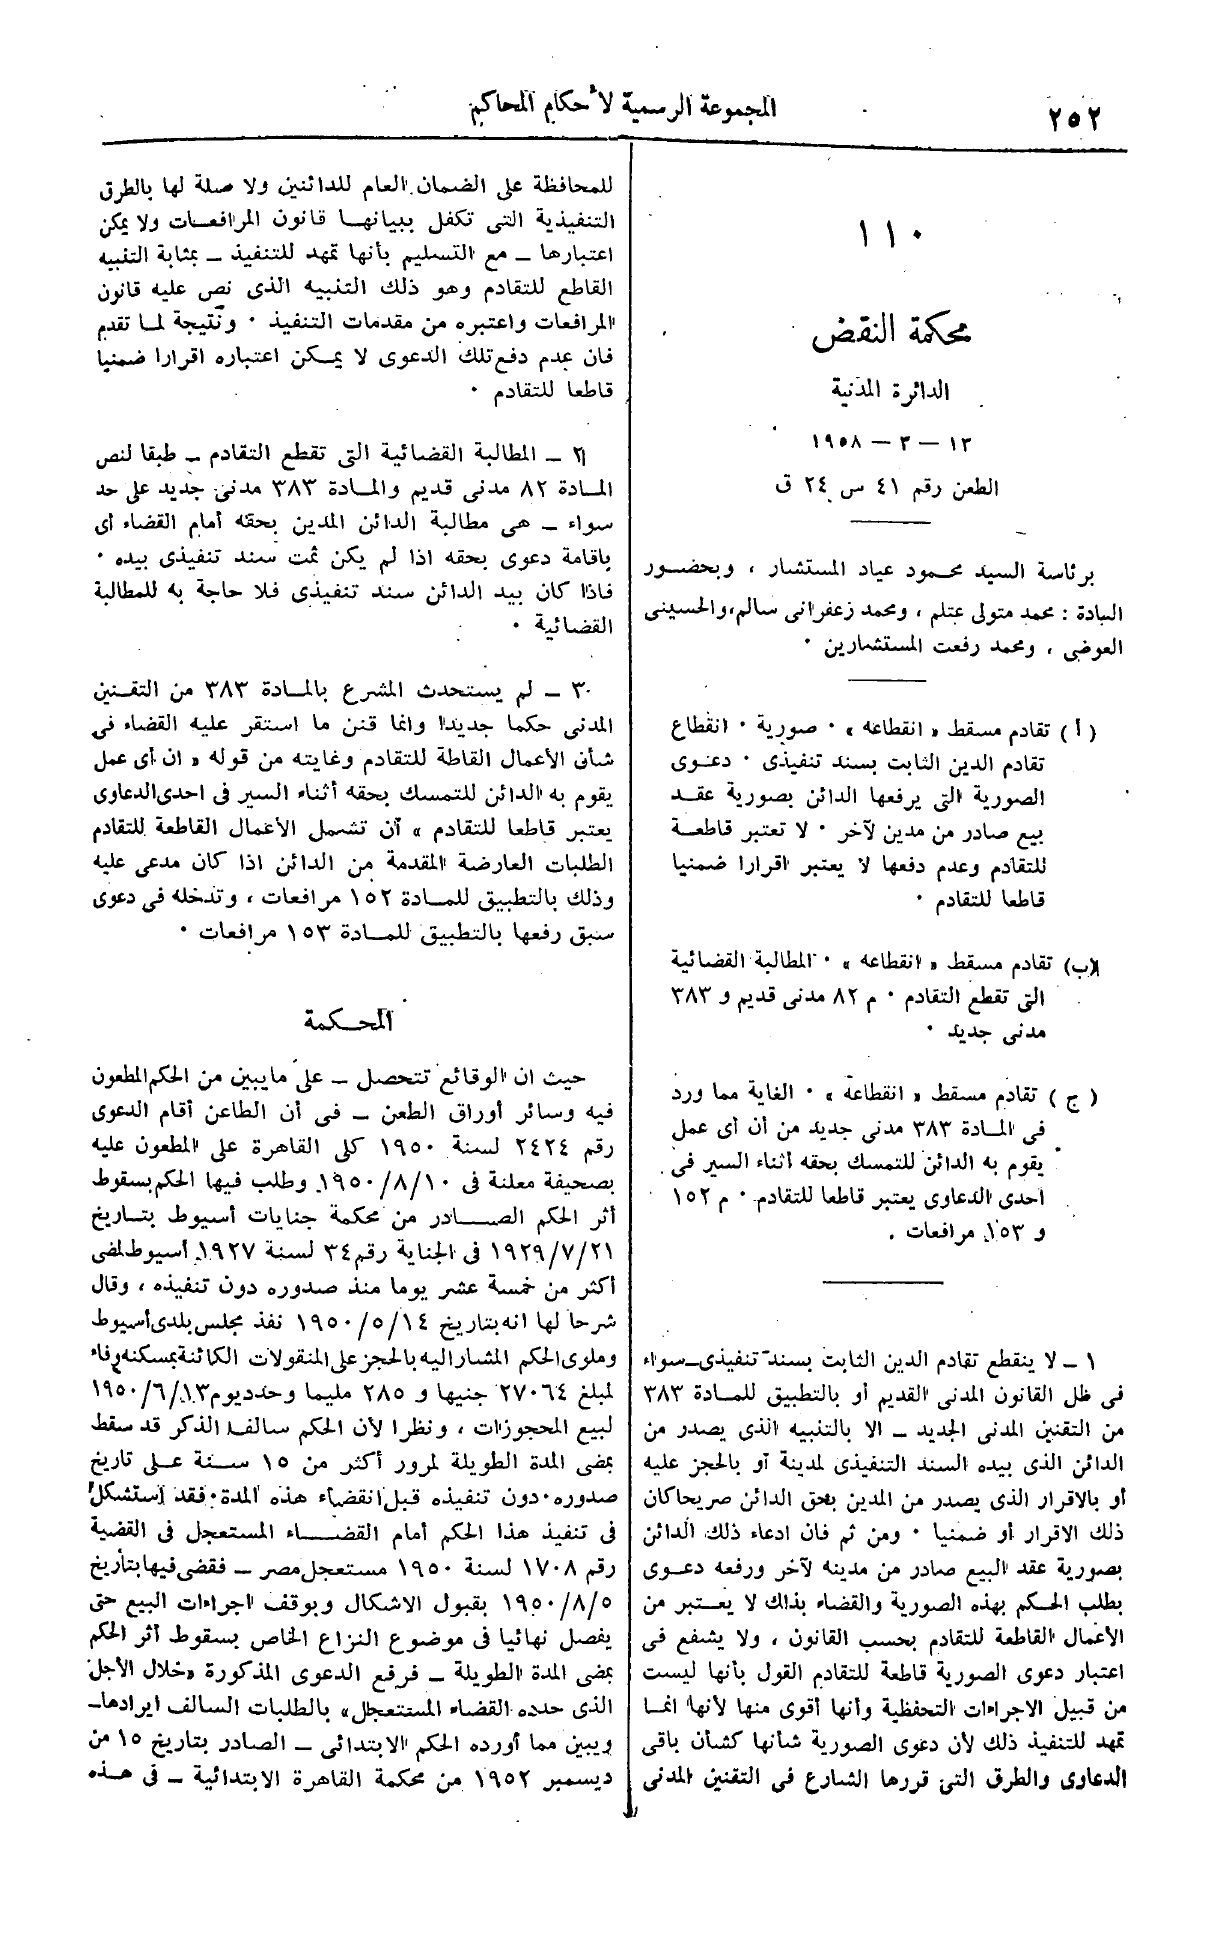 ٢٥٢
المجموعة الرسمية لأحكام المحاكم
١١٠
محكمة النقض
الدائرة المدنية
١٣ – ٣ – ١٩٥٨
الطعن رقم ٤١ س ٢٤ ق
برئاسة السيد محمود عياد المستشار ، وبحضور
السادة : محمد متولى عتلم ، ومحمد زعفرانى سالم، والحسينى
العوضى ، ومحمد رفعت المستشارين ٠
(أ) تقادم مسقط « انقطاعه » ٠ صورية ٠ انقطاع
تقادم الدين الثابت بسند تنفيذى ٠ دعوى
الصورية التى يرفعها الدائن بصورية عقد
بيع صادر من مدين لآخر ٠ لا تعتبر قاطعة
للتقادم وعدم دفعها لا يعتبر اقرارا ضمنيا
قاطعا للتقادم ٠
(ب) تقادم مسقط « انقطاعه » ٠ المطالبة القضائية
التى تقطع التقادم ٠ م ٨٢ مدنى قديم و ٣٨٣
مدنى جديد ٠
(ج) تقادم مسقط « انقطاعه » ٠ الغاية مما ورد
فى المادة ٣٨٣ مدنى جديد من أن أى عمل
يقوم به الدائن للتمسك بحقه أثناء السير فى
احدى الدعاوى يعتبر قاطعا للتقادم ٠ م ١٥٢
و ١٥٣ مرافعات .
١ – لا ينقطع تقادم الدين الثابت بسند تنفيذى – سواء
فى ظل القانون المدنى القديم أو بالتطبيق للمادة ٣٨٣
من التقنين المدنى الجديد – الا بالتنبيه الذى يصدر من
الدائن الذى بيده السند التنفيذى لمدينة أو بالحجز عليه
أو بالاقرار الذى يصدر من المدين بحق الدائن صريحا كان
ذلك الاقرار أو ضمنيا ٠ ومن ثم فان ادعاء ذلك الدائن
بصورية عقد البيع صادر من مدينه لآخر ورفعه دعوى
بطلب الحكم بهذه الصورية والقضاء بذلك لا يعتبر من
الأعمال القاطعة للتقادم بحسب القانون ، ولا يشفع فى
اعتبار دعوى الصورية قاطعة للتقادم القول بأنها ليست
من قبيل الاجراءات التحفظية وأنها أقوى منها لأنها انما
تمهد للتنفيذ ذلك لأن دعوى الصورية شأنها كشأن باقى
الدعاوى والطرق التى قررها الشارع فى التقنين المدنى
للمحافظة على الضمان العام للدائنين ولا صلة لها بالطرق
التنفيذية التى تكفل ببيانها قانون المرافعات ولا يمكن
اعتبارها – مع التسليم بأنها تمهد للتنفيذ – بمثابة التنبيه
القاطع للتقادم وهو ذلك التنبيه الذى نص عليه قانون
المرافعات واعتبره من مقدمات التنفيذ ٠ ونتيجة لما تقدم
فان عدم دفع تلك الدعوى لا يمكن اعتباره اقرارا ضمنيا
قاطعا للتقادم ٠
٢ – المطالبة القضائية التى تقطع التقادم – طبقا لنص
المادة ٨٢ مدنى قديم والمادة ٣٨٣ مدنى جديد على حد
سواء – هى مطالبة الدائن المدين بحقه أمام القضاء أى
باقامة دعوى بحقه اذا لم يكن ثمت سند تنفيذى بيده ٠
فاذا كان بيد الدائن سند تنفيذى فلا حاجة به للمطالبة
القضائية ٠
٣ – لم يستحدث المشرع بالمادة ٣٨٣ من التقنين
المدنى حكما جديدا وانما قنن ما استقر عليه القضاء فى
شأن الأعمال القاطة للتقادم وغايته من قوله « ان أى عمل
يقوم به الدائن للتمسك بحقه أثناء السير فى احدى الدعاوى
يعتبر قاطعا للتقادم » أن تشمل الأعمال القاطعة للتقادم
الطلبات العارضة المقدمة من الدائن اذا كان مدعى عليه
وذلك بالتطبيق للمادة ١٥٢ مرافعات ، وتدخله فى دعوى
سبق رفعها بالتطبيق للمادة ١٥٣ مرافعات ٠
المحكمة
حيث ان الوقائع تتحصل – على ما يبين من الحكم المطعون
فيه وسائر أوراق الطعن – فى أن الطاعن أقام الدعوى
رقم ٢٤٢٤ لسنة ١٩٥٠ كلى القاهرة على المطعون عليه
بصحيفة معلنة فى ١٩٥٠/٨/١٠ وطلب فيها الحكم بسقوط
أثر الحكم الصادر من محكمة جنايات أسيوط بتاريخ
١٩٢٩/٧/٢١ فى الجناية رقم ٣٤ لسنة ١٩٢٧ أسيوط لمضى
أكثر من خمسة عشر يوما منذ صدوره دون تنفيذه ، وقال
شرحا لها انه بتاريخ ١٩٥٠/٥/١٤ نفذ مجلس بلدى أسيوط
وملوى الحكم المشار اليه بالحجز على المنقولات الكائنة بمسكنه وفاء
لمبلغ ٢٧٠٦٤ جنيها و ٢٨٥ مليما وحدد يوم ١٩٥٠/٦/١٣
لبيع المحجوزات ، ونظرا لأن الحكم سالف الذكر قد سقط
بمضى المدة الطويلة لمرور أكثر من ١٥ سنة على تاريخ
صدوره دون تنفيذه قبل انقضاء هذه المدة فقد استشكل
فى تنفيذ هذا الحكم أمام القضاء المستعجل فى القضية
رقم ١٧٠٨ لسنة ١٩٥٠ مستعجل مصر – فقضى فيها بتاريخ
١٩٥٠/٨/٥ بقبول الاشكال وبوقف اجراءات البيع حتى
يفصل نهائيا فى موضوع النزاع الخاص بسقوط أثر الحكم
بمضى المدة الطويلة – فرفع الدعوى المذكورة «خلال الأجل
الذى حدده القضاء المستتعجل» بالطلبات السالف ايرادها–
ويبين مما أورده الحكم الابتدائى – الصادر بتاريخ ١٥ من
ديسمبر ١٩٥٢ من محكمة القاهرة الابتدائية – فى هذه